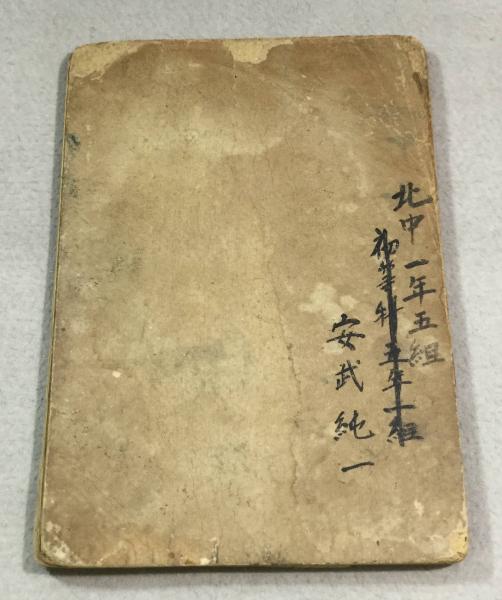 北中一年五組
初等科五年一組
安武純一